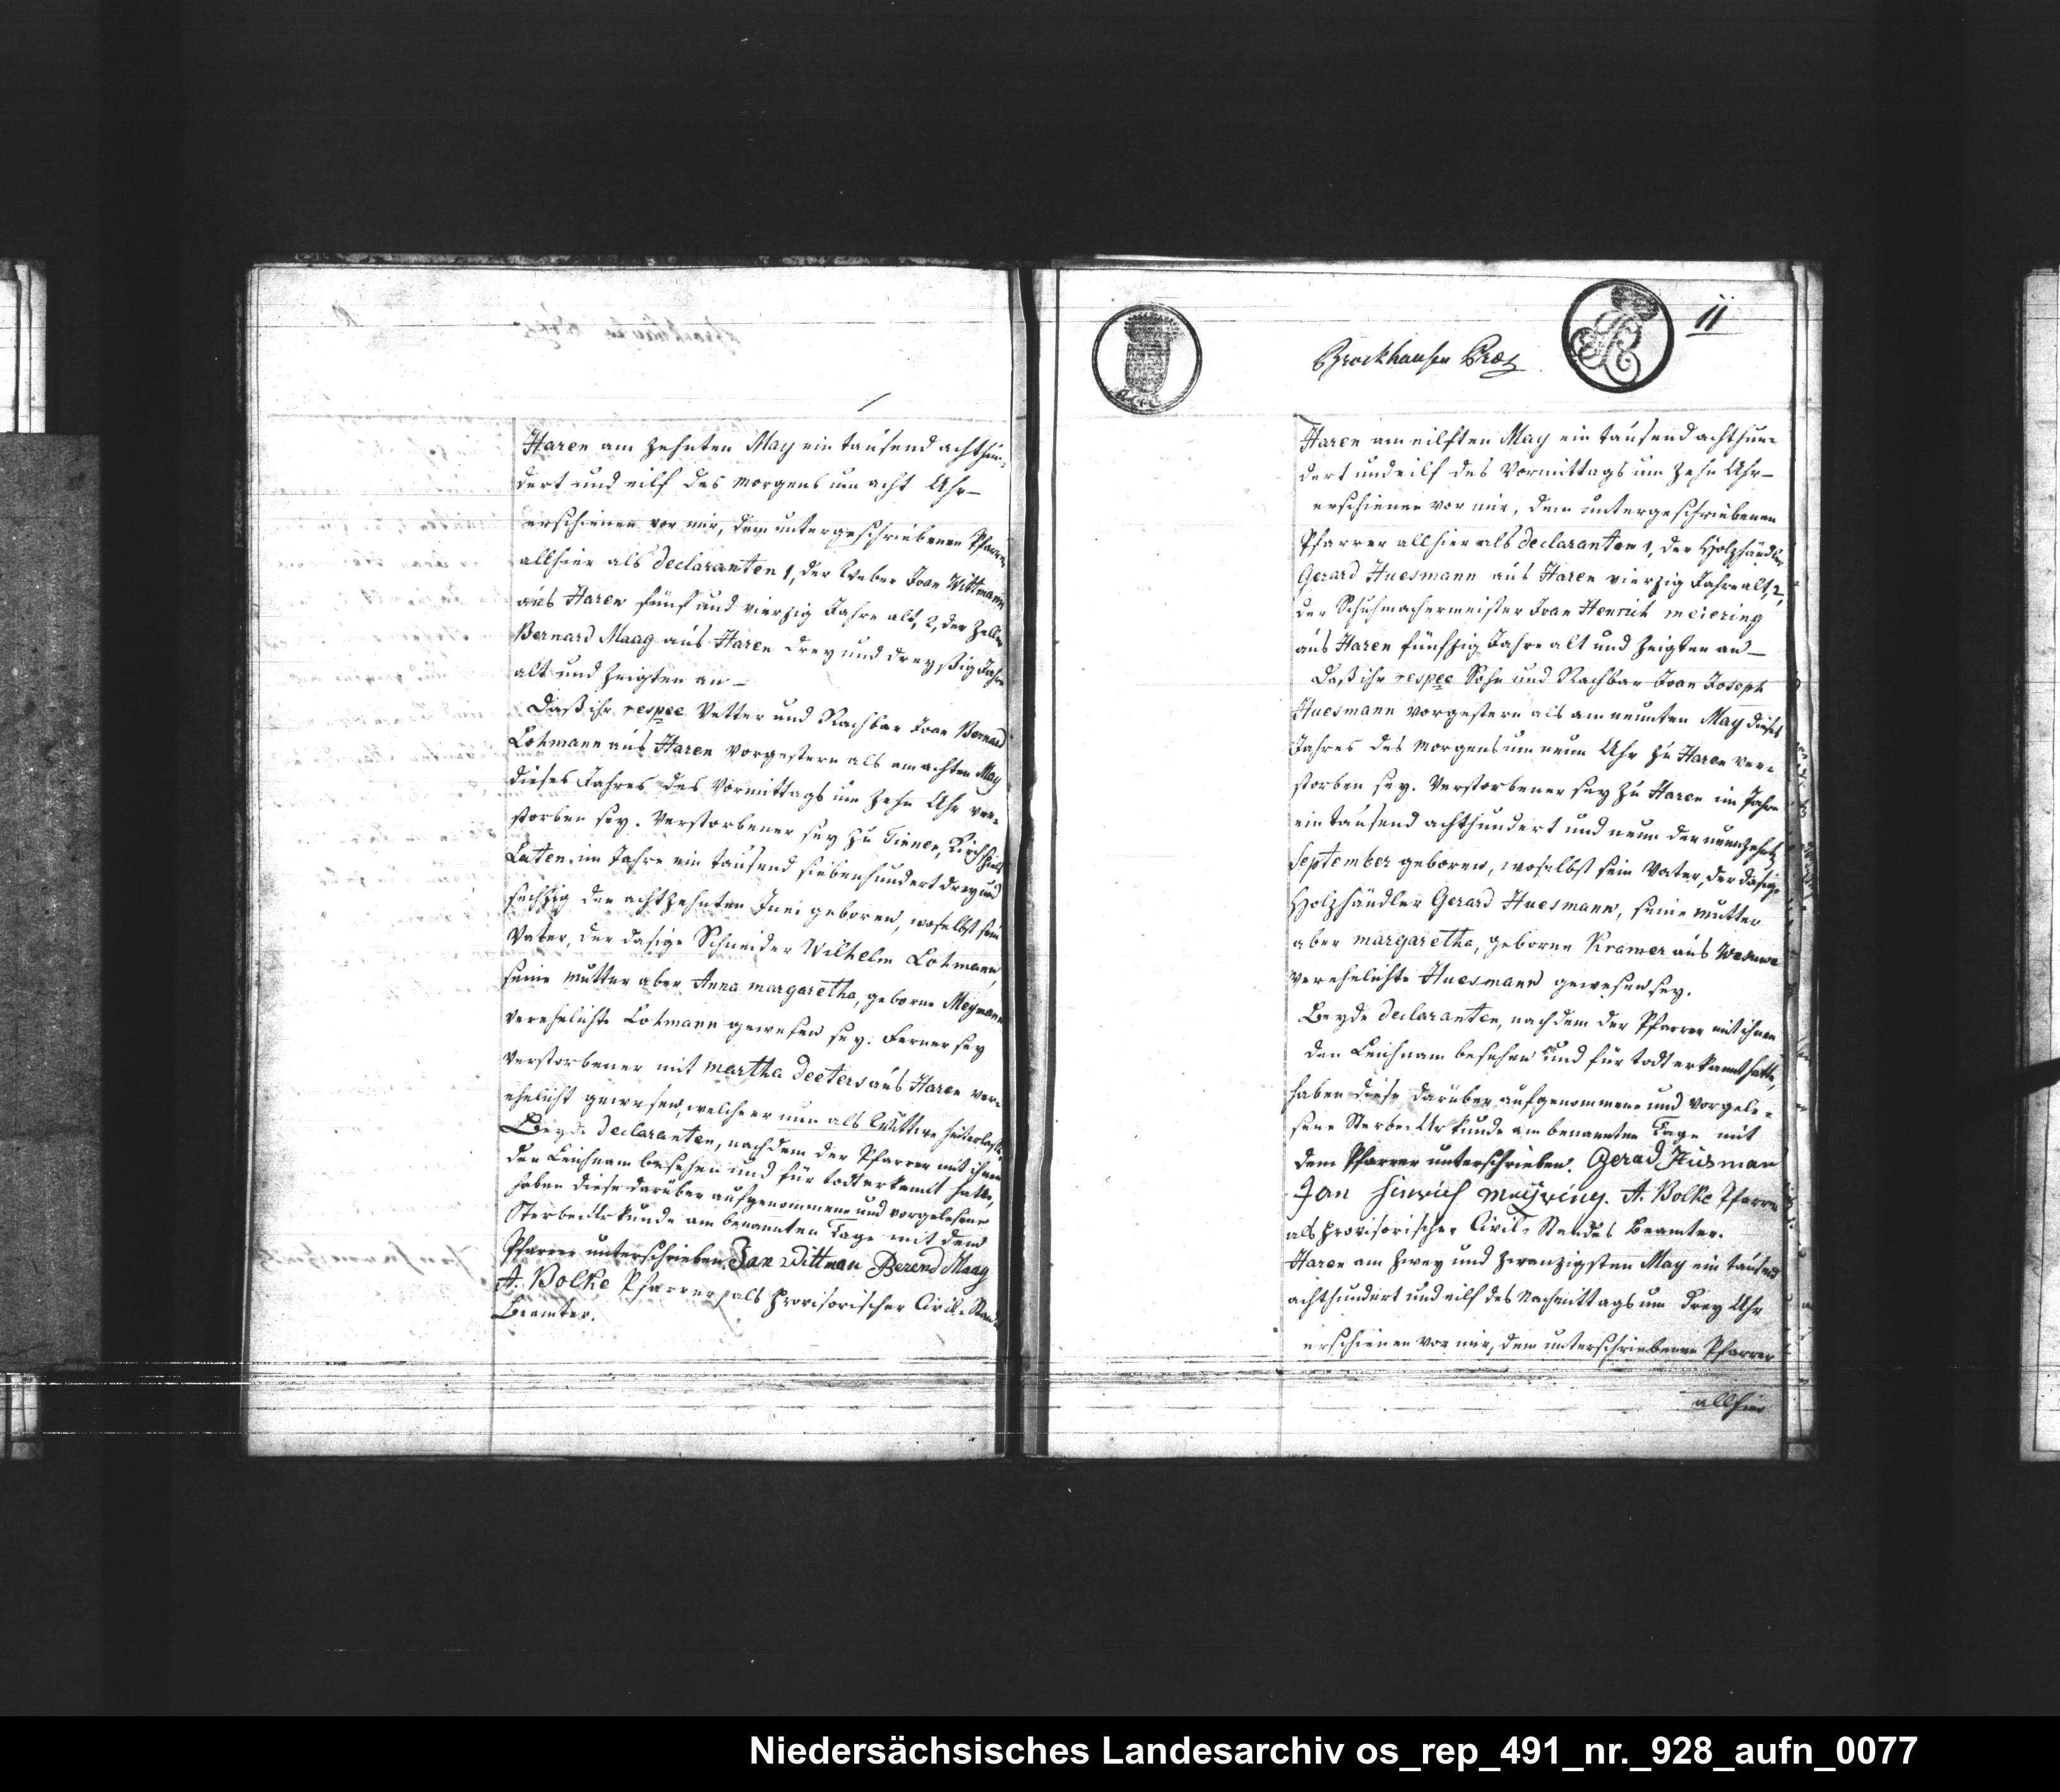 Haren am zehnten May ein tausend achthun-
dert und eilf des morgens um acht Uhr –
erschienen vor mir, dem untergeschriebenen Pfarrer
allhier als declaranten 1, der Weber Joan Wittmann
aus Haren fünf und vierzig Jahre alt, 2, der Zeller
Bernard Maag aus Haren drey und dreyßig Jahre
alt und zeigten an –
Daß ihr respee Vetter und Nachbar Joan Bernard
Lohmann aus Haren vorgestern als am achten May
dieses Jahres des Vormittags um zehn Uhr ver-
storben sey. Verstorbener sey zu Tinnen, Kirchspiels
Laten, im Jahre ein tausend siebenhundert drey und
sechzig den achtzehnten Juni geboren, woselbst sein
Vater, der dasige Schneider Wilhelm Lohmann,
seine mutter aber Anna margaretha, geborne Meymann
verehelichte Lohmann gewesen sey. Ferner sey
Verstorbener mit martha deeters aus Haren ver-
ehelicht gewesen, welche er nun als Wittwe hinterlasse.
Beyde declaranten, nachdem der Pfarrer mit ihnen
den Leichnam besehen und für todt erkannt hatte,
haben diese darüber aufgenommene und vorgelesene
Sterbe-Urkunde am benannten Tage mit dem
Pfarrer unterschrieben. Jan Wittman Berend Maag
A. Bolke Pfarrer, als provisorischer Civil-Stands
Beamter.
11
Brockhausen
Haren am eilften May ein tausend achthun-
dert und eilf des Vormittags um zehn Uhr –
erschienen vor mir, dem untergeschriebenen
Pfarrer allhier als declaranten 1, der Holzhändler
Gerard Huesmann aus Haren vierzig Jahre alt, 2,
der Schuhmachermeister Joan Henrich meiering
aus Haren fünfzig Jahre alt und zeigten an –
Daß ihr respee Sohn und Nachbar Joan Joseph
Huesmann vorgestern als am neunten May dieses
Jahres des morgens um neun Uhr zu Haren ver-
storben sey. Verstorbener sey zu Haren im Jahre
ein tausend achthundert und neun den neunzehnten
September geboren, woselbst sein Vater, der dasige
Holzhändler Gerard Huesmann, seine mutter
aber margaretha, geborne Kramer aus Wesuwe
verehelichte Huesmann gewesen sey.
Beyde declaranten, nachdem der Pfarrer mit ihnen
den Leichnam besehen und für todt erkannt hatte,
haben diese darüber aufgenommene und vorgele-
sene Sterbe-Urkunde am benannten Tage mit
dem Pfarrer unterschrieben. Gerad Husman
Jan Hinrich Meyring. A. Bolke Pfarrer
als provisorischer Civil-Standes Beamter.
Haren am zwey und zwanzigsten May ein tausend
achthundert und eilf des Nachmittags um drey Uhr
erschienen vor mir, dem unterschriebenen Pfarrer
allhier
Niedersächsisches Landesarchiv os_rep_491_nr._928_aufn_0077